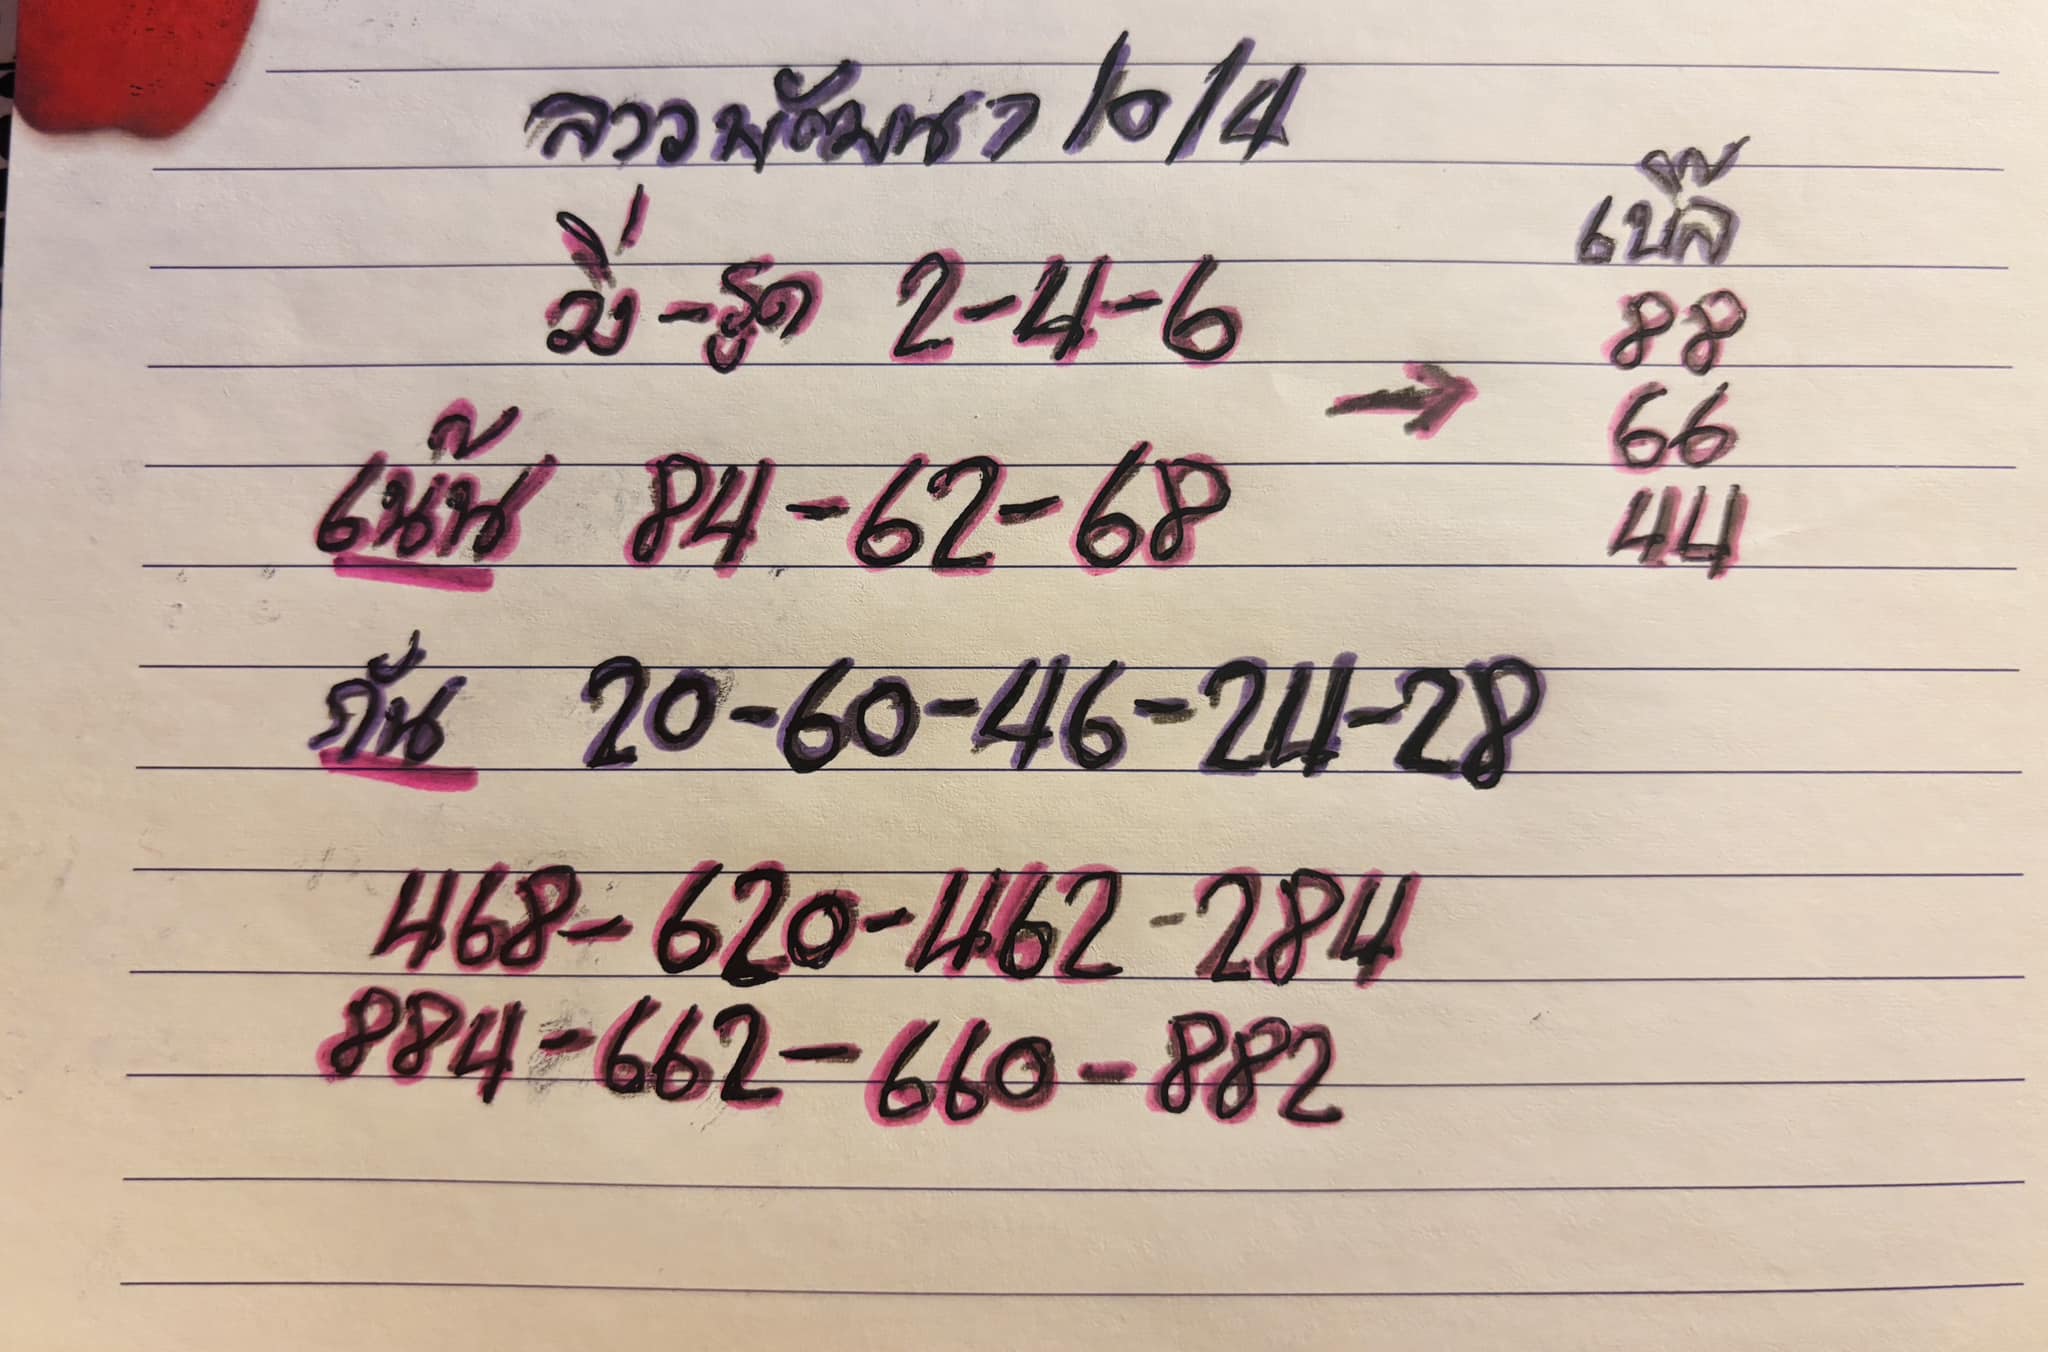 ลาวพัฒนา 10/4
วิ่ง-รูด 2-4-6
เน้น 84-62-68
กัน 20-60-46-24-28
468-620-462-284
884-662-660-882
เบิ้ล
88
66
44